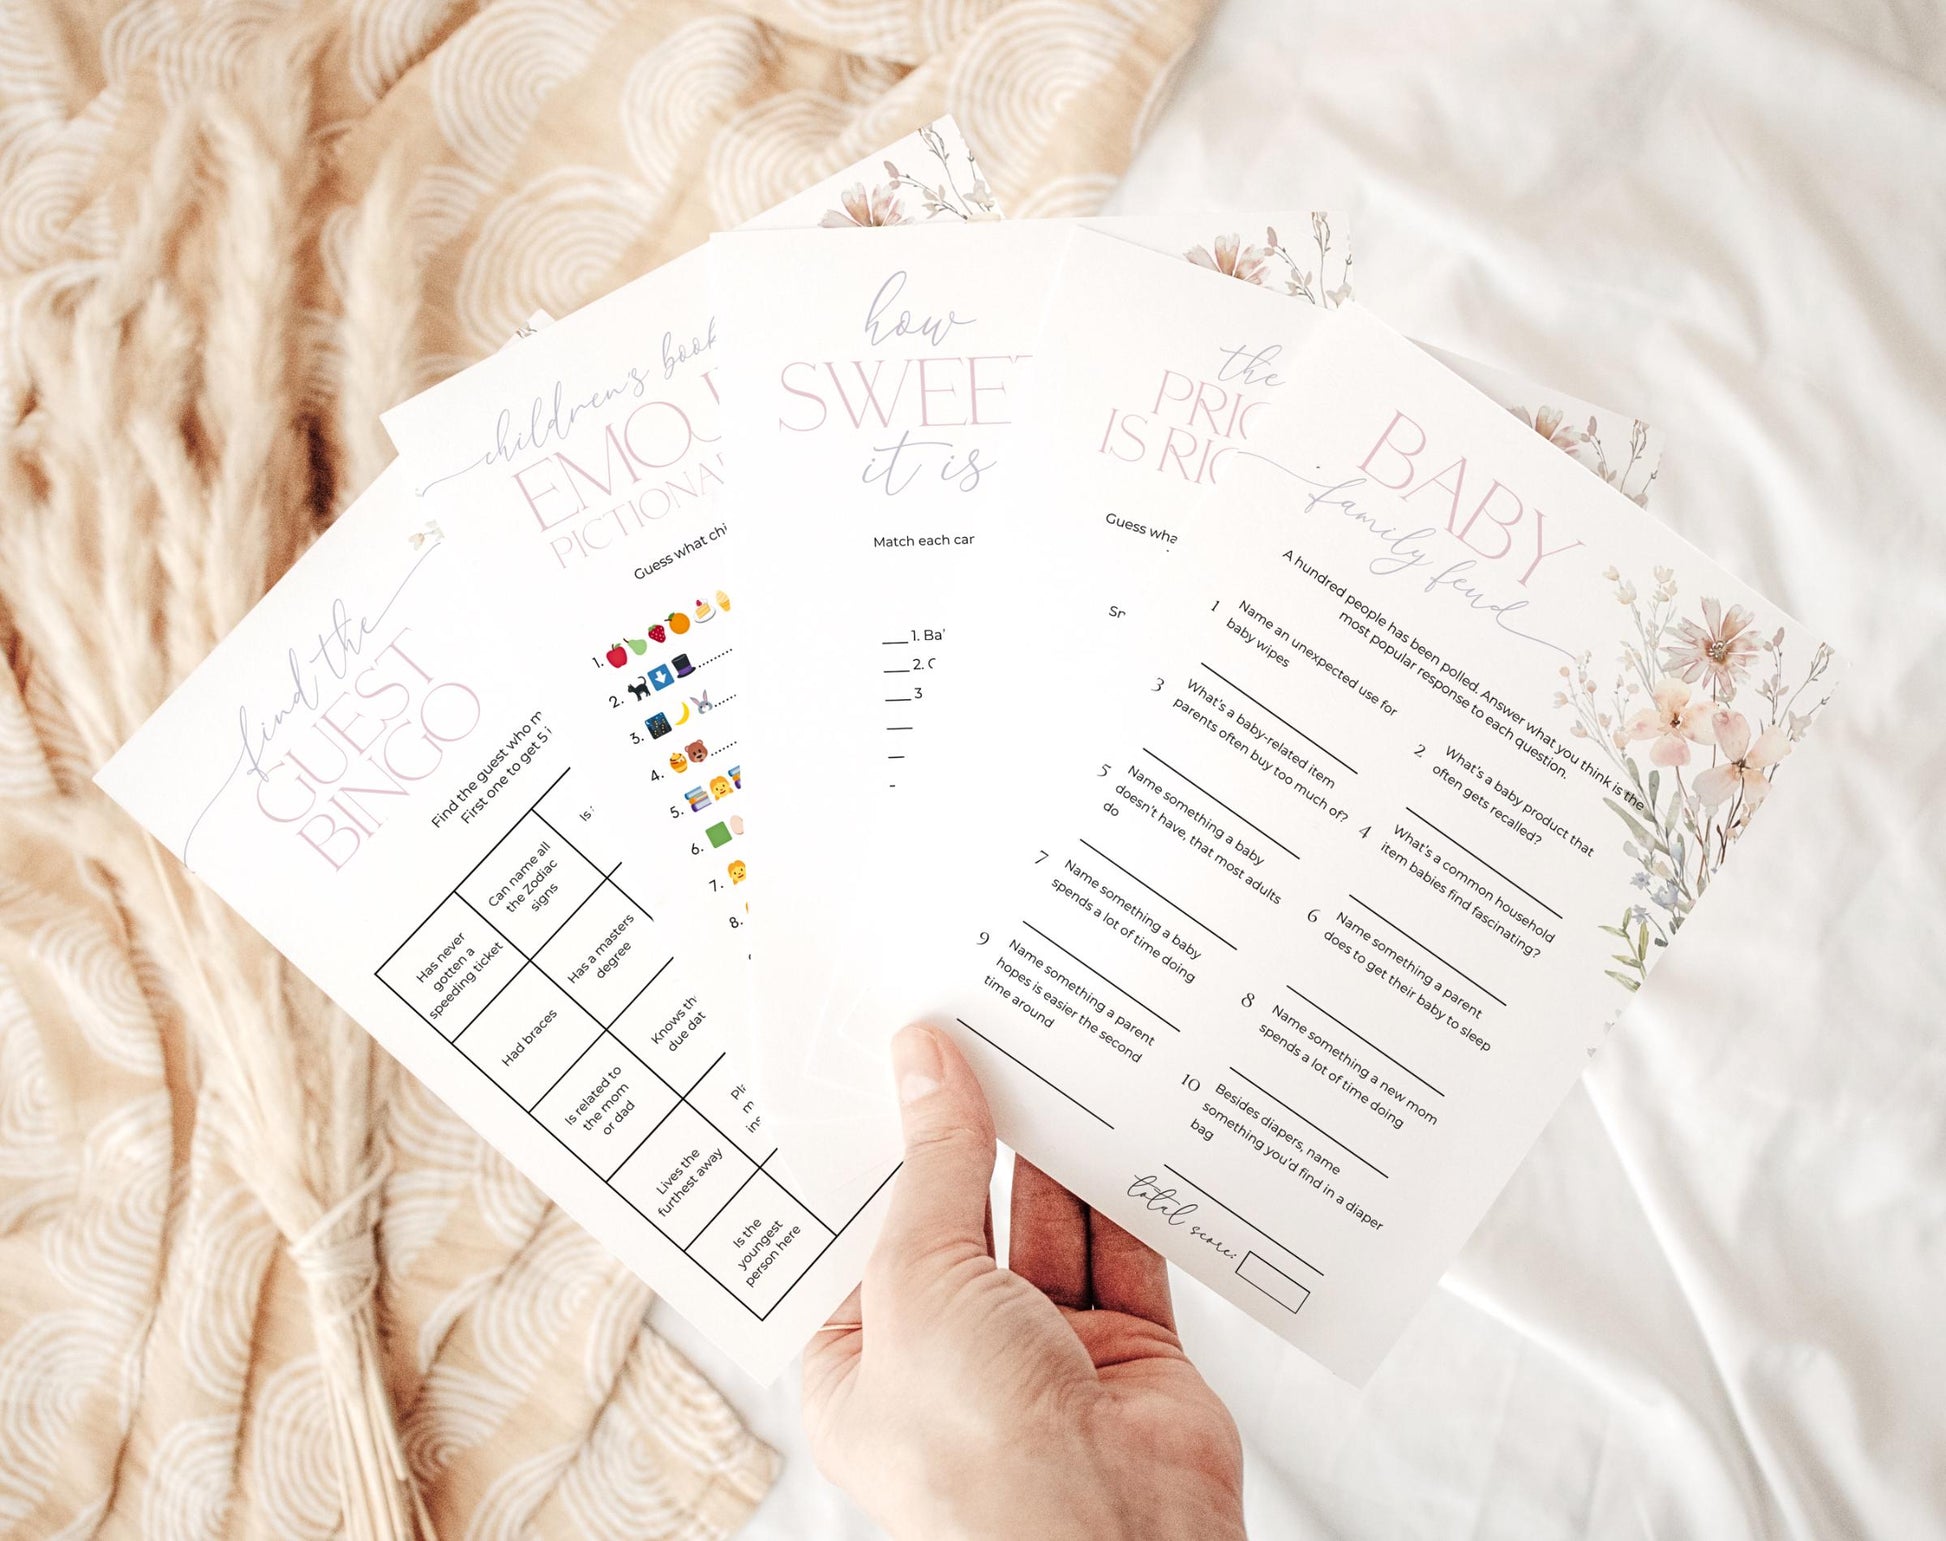 find the
GUEST
BINGO
Find the guest who m
First one to get 5 i
Can name all
the Zodiac
signs
Has never
gotten a
speeding ticket
Has a masters
degree
Had braces
Knows th
due dat
Is related to
the mom
or dad
Lives the
furthest away
Is the
youngest
person here
children's book
EMOJI
PICTIONA
Guess what chi
1.
2.
3.
4.
5.
6.
7.
8.
how
SWEET
it is
Match each car
1. Ba
2.
3
the
PRIC
IS RIG
Guess wha
BABY
family feud
A hundred people has been polled. Answer what you think is the
most popular response to each question.
1 Name an unexpected use for
baby wipes
2 What's a baby product that
often gets recalled?
3 What's a baby-related item
parents often buy too much of?
4 What's a common household
item babies find fascinating?
5 Name something a baby
doesn't have, that most adults
do
6 Name something a parent
does to get their baby to sleep
7 Name something a baby
spends a lot of time doing
8 Name something a new mom
spends a lot of time doing
9 Name something a parent
hopes is easier the second
time around
10 Besides diapers, name
something you'd find in a diaper
bag
total score: